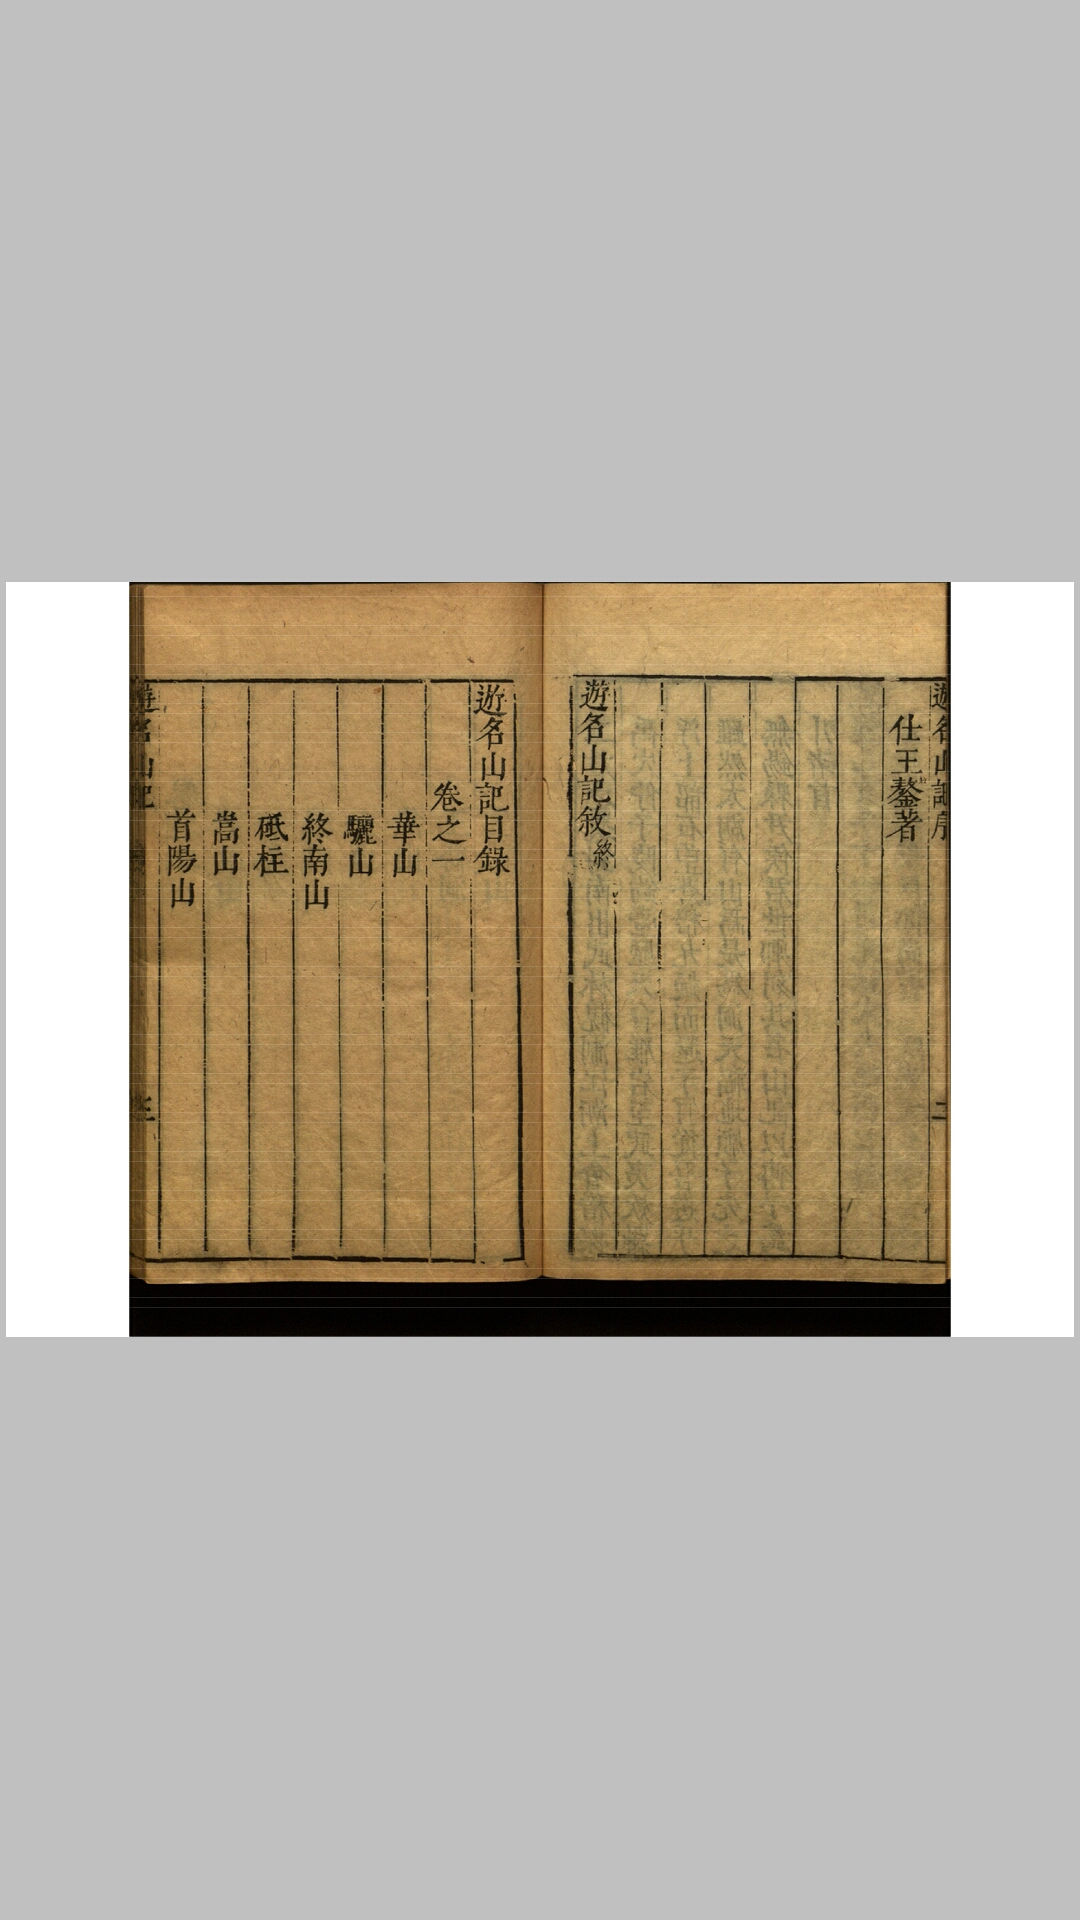 遊名山記序
二
仕王鏊著
遊名山記敘終
遊名山記目錄
卷之一
華山
驪山
終南山
砥柱
嵩山
首陽山
遊名山記
三